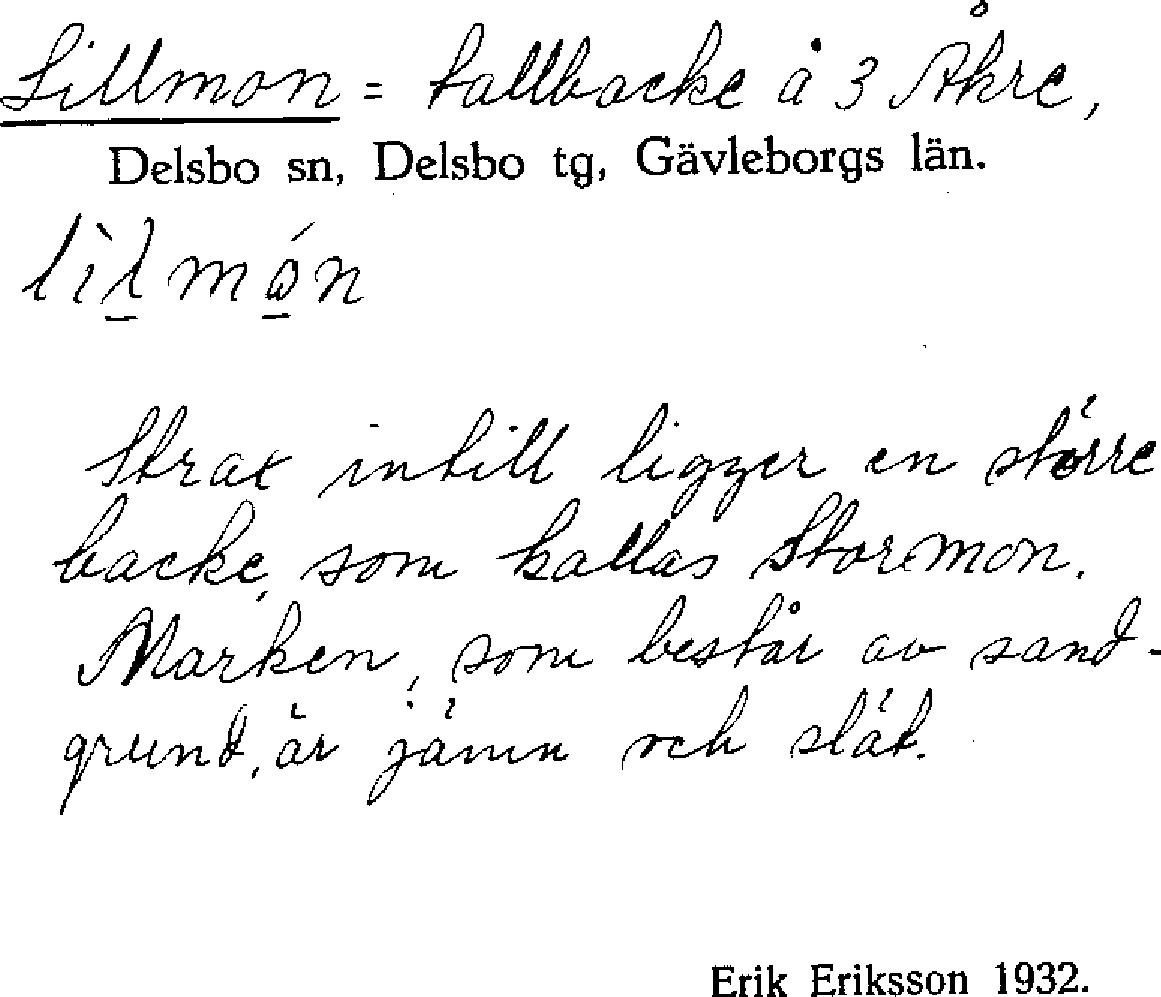 Lillmon = tallbacke å 3 Åkre,
Delsbo sn, Delsbo tg, Gävleborgs län.
lìl̠mǫ́n
Strax intill ligger en större
backe, som kallas Stormon.
Marken, som består av sand-
grund, är jämn och slät.
Erik Eriksson 1932.